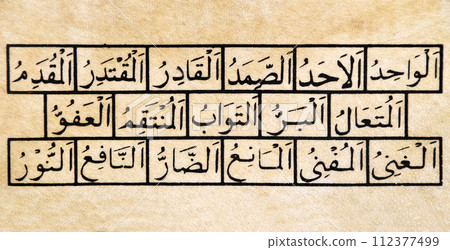 اَلْوَاحِدُ اَلْاَحَدُ اَلصَّمَدُ اَلْقَادِرُ اَلْمُقْتَدِرُ اَلْمُقَدِمُ
اَلْمُتَعَالُ اَلْبَرُّ اَلتَّوَابُ اَلْمُنْتَقِمُ اَلْعَفُوُّ
اَلْغَنِىُّ اَلْمُغْنِىُّ اَلْمَانِعُ اَلضَّارُّ اَلنَّافِعُ اَلنُّوْرُ
112377499